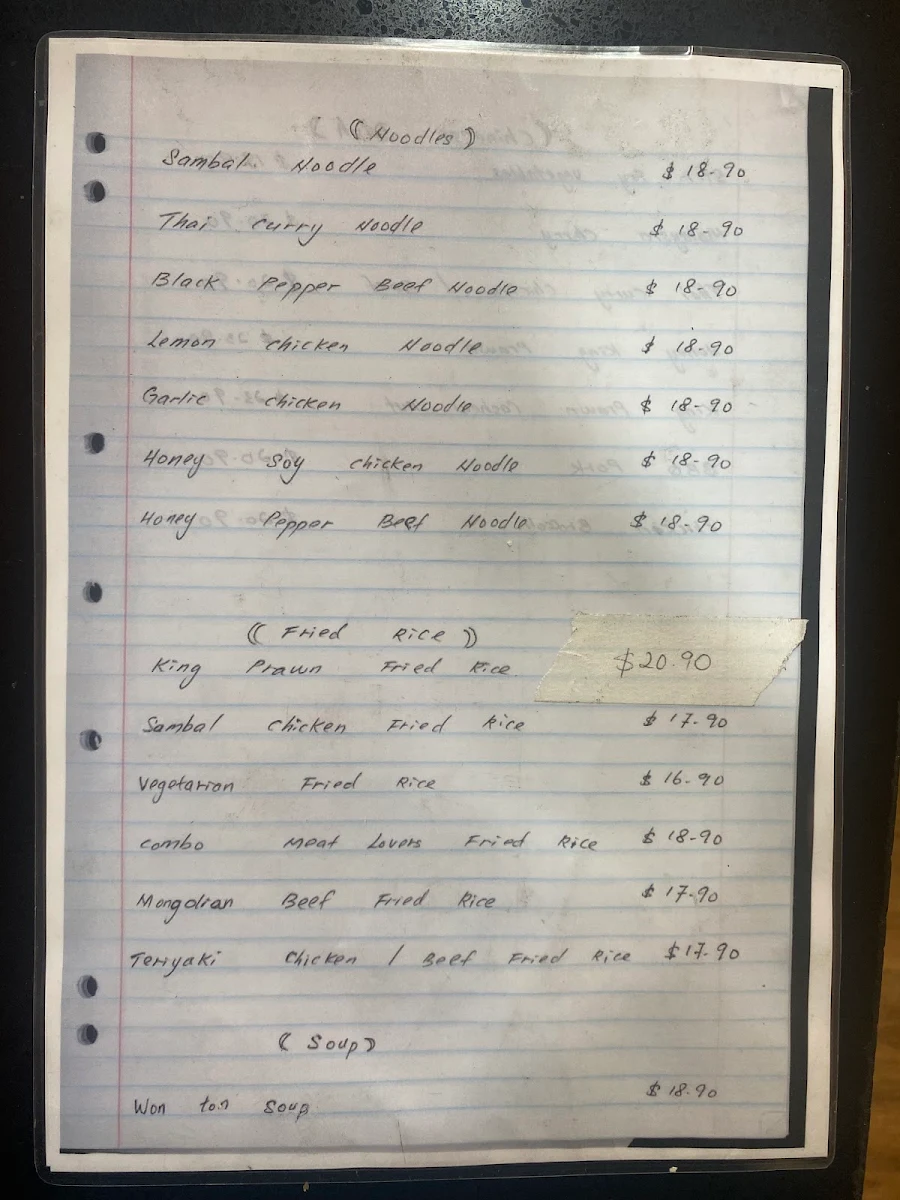 (( Noodles ))
Sambal Noodle $ 18-90
Thai curry Noodle $ 18-90
Black Pepper Beef Noodle $ 18-90
Lemon chicken Noodle $ 18-90
Garlic chicken Noodle $ 18-90
Honey Soy chicken Noodle $ 18-90
Honey Pepper Beef Noodle $ 18-90
(( Fried Rice ))
King Prawn Fried Rice $20.90
Sambal chicken Fried Rice $ 17-90
Vegetarian Fried Rice $ 16-90
combo Meat Lovers Fried Rice $ 18-90
Mongolian Beef Fried Rice $ 17-90
Teriyaki Chicken / Beef Fried Rice $ 17-90
(( Soup ))
Won ton Soup $ 18-90